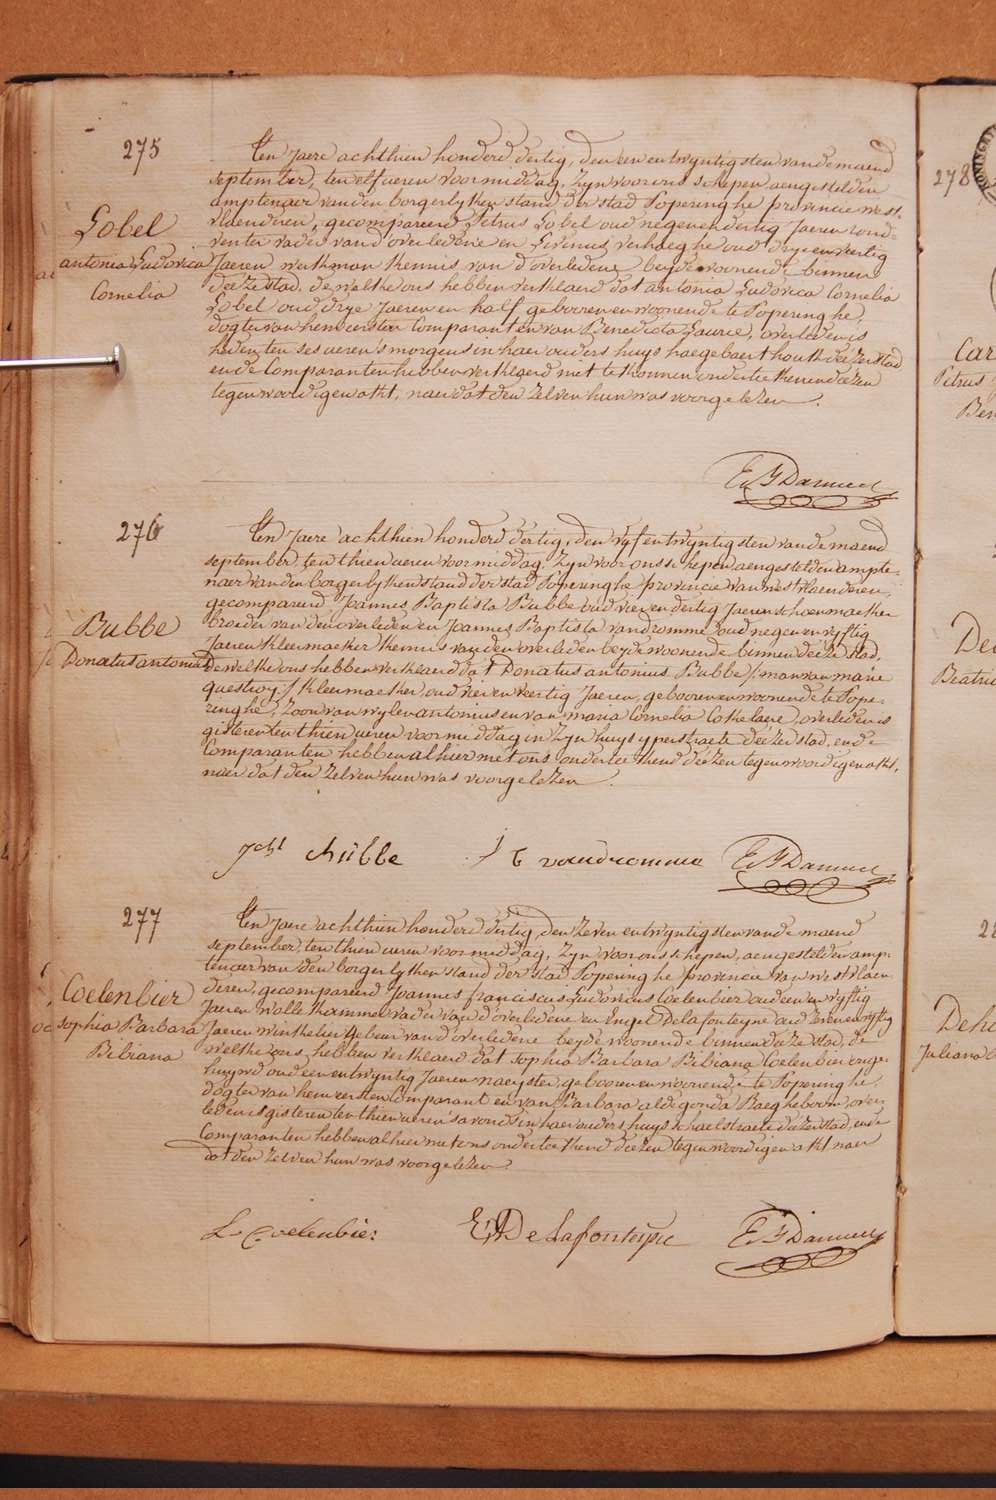 275
Lobel
antonia Ludovica
Cornelia
Ten Jaere achthien honderd dertig, den een en twyntigsten van de maend
september, ten elf ueren voormiddag, zyn voor ons schepen aengestelden
amptenaer van den borgerlyken stand der stad Poperinghe provincie west-
vlaenderen, gecompareerd Petrus Lobel oud negenendertig Jaeren rend-
renter vader van d'overledene en Livinus verhaeghe oud dryenveertig
Jaeren werkman kennis van d'overledene beyde woonende binnen
deeze stad, de welke ons hebben verklaerd dat antonia Ludovica Cornelia
Lobel oud drye Jaeren en half gebooren en woonende te Poperinghe,
dogter van hem eersten Comparant en van Benedicta Laurie, overleden is
heden ten ses ueren s'morgens in haer ouders huys haegebaert hout deezer stad
en de Comparanten hebben verklaerd niet te konnen onderteekenen deezen
tegenwoordigen akt, naer dat den zelven hun was voorgelezen.
276
Bubbe
Donatus antonius
Ten Jaere achthien honderd dertig, den vyfentwyntigsten van de maend
september, ten thien ueren voormiddag, zyn voor ons schepen aengestelden ampte-
naer van den borgerlyken stand der stad Poperinghe provincie van westvlaenderen,
gecompareerd Joannes Baptista Bubbe oud vierendertig Jaeren schoenmaeker
broeder van den overleden en Joannes Baptista vandromme oud negen en vyftig
Jaeren kleermaeker kennis van den overleden beyde woonende binnen deeze stad,
de welke ons hebben verklaerd dat Donatus antonius Bubbe /: man van marie
questroy :/ kleermaeker oud vierenveertig Jaeren, gebooren en woonende te Pope-
ringhe, zoon van wylen antonius en van maria Cornelia Cokelaere, overleden is
gisteren ten thien ueren voormiddag in zyn huys yperstraete deezer stad, en de
Comparanten hebben alhier met ons onderteekend deezen tegenwoordigen akt,
naer dat den zelven hun was voorgelezen.
vandromme
277
Coelenbier
sophia Barbara
Bibiana
Ten Jaere achthien honderd dertig, den zeven entwyntigsten van de maend
september, ten thien ueren voormiddag, zyn voor ons schepen, aengestelden amp-
tenaer van den borgerlyken stand der stad Poperinghe provincie van westvlaen-
deren, gecompareerd Joannes franciscus Ludovicus Coelenbier oud een en vyftig
Jaeren wolle kammer vader van d'overledene en Engel Delafonteyne oud zeven en vyftig
Jaeren winkelier gebeur van d'overledene beyde woonende binnen deeze stad, de
welke ons hebben verklaerd dat sophia Barbara Bibiana Coelenbier onge-
huywd oud een en twyntig Jaeren naeyster, gebooren en woonende te Poperinghe,
dogter van hem eersten Comparant en van Barbara aldegonda Baegheboom, over-
leden is gisteren ten thien ueren s'avonds in haer ouders huys schaelstraete deezer stad, en de
Comparanten hebben alhier met ons onderteekend deezen tegenwoordigen akt naer
dat den zelven hun was voorgelezen.
L Coelenbier
E De Lafonteyne
278
Petrus